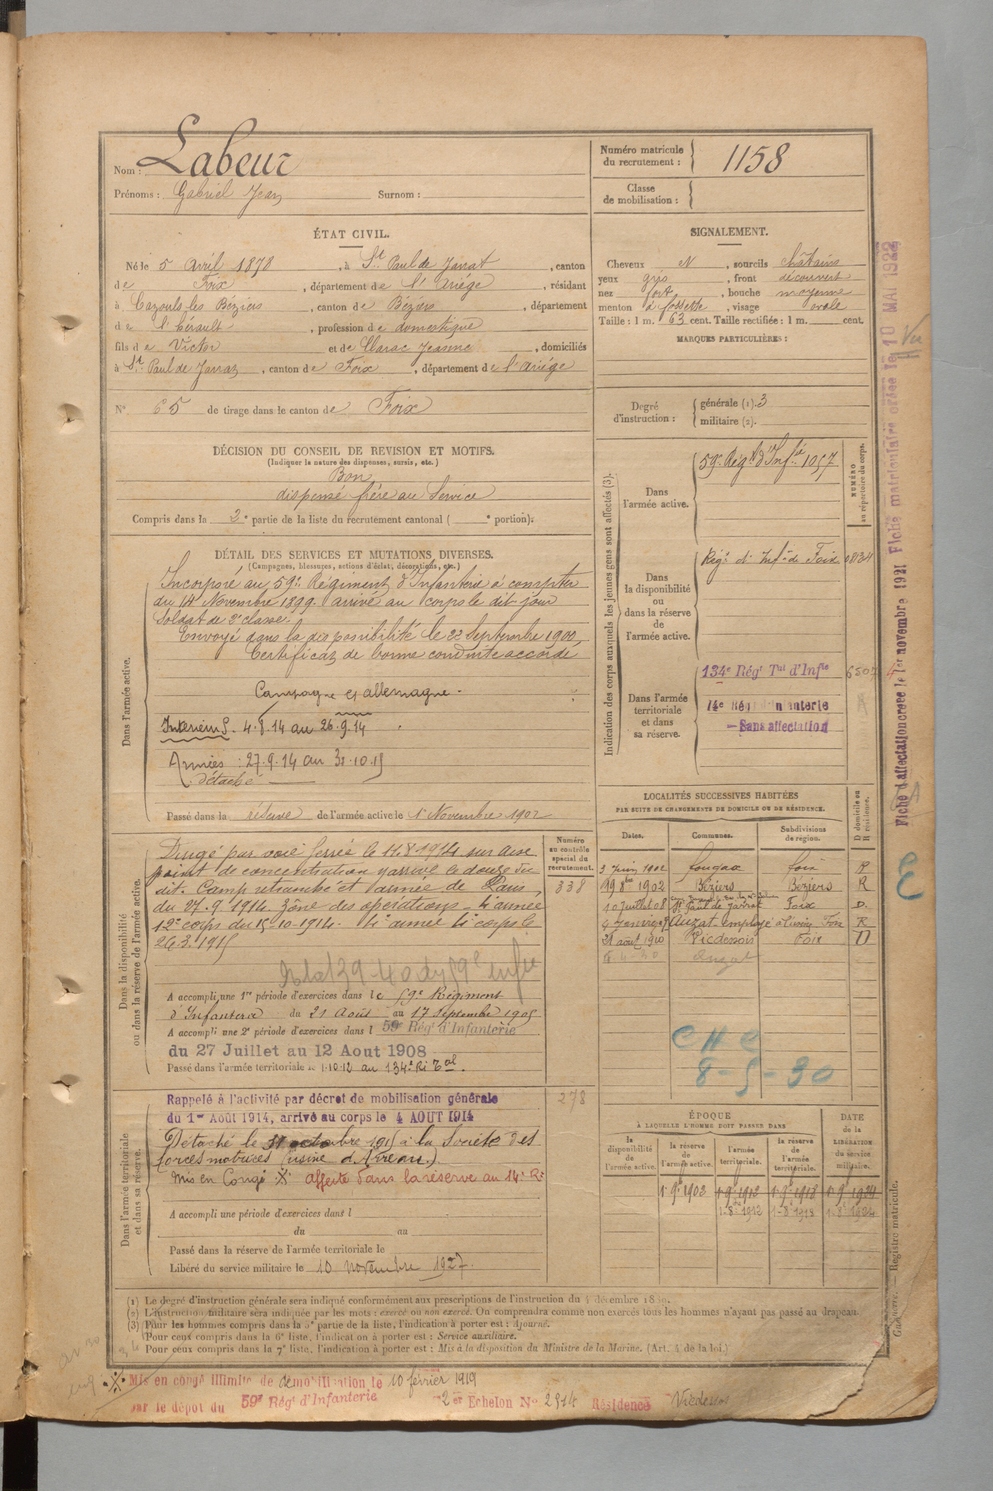 Nom : Labeur
Prénoms : Gabriel Jean Surnom :
Numéro matricule du recrutement : 1158
Classe de mobilisation :
ÉTAT CIVIL.
Né le 5 Avril 1878, à St Paul de Jarrat, canton
de Foix, département de l'Ariège, résidant
à Cazouls-les-Béziers, canton de Béziers, département
de l'hérault, profession de domestique
fils de Victor et de Clarac Jeanne, domiciliés
à St Paul de Jarrat, canton de Foix, département de l'Ariège
N° 65 de tirage dans le canton de Foix
SIGNALEMENT.
Cheveux N, sourcils châtains
yeux gris, front découvert
nez fort, bouche moyenne
menton à fossette, visage ovale
Taille : 1 m. 63 cent. Taille rectifiée : 1 m. cent.
MARQUES PARTICULIÈRES :
Degré d'instruction : générale (1). 3
militaire (2).
DÉCISION DU CONSEIL DE REVISION ET MOTIFS.
(Indiquer la nature des dispenses, sursis, etc.)
Bon
dispensé frère au Service
Compris dans la 2e partie de la liste du recrutement cantonal ( e portion).
DÉTAIL DES SERVICES ET MUTATIONS DIVERSES.
(Campagnes, blessures, actions d'éclat, décorations, etc.)
Dans l'armée active.
Incorporé au 59e Régiment d'Infanterie à compter
du 14 Novembre 1899. arrivé au corps le dit jour
Soldat de 2e classe.
Envoyé dans la disponibilité le 22 Septembre 1900
Certificat de bonne conduite accordé
Campagne c/ allemagne
Intérieur S. 4.8.14 au 26.9.14
Armées : 27.9.14 au 31.10.15
détaché
Passé dans la réserve de l'armée active le 1er Novembre 1902
Indication des corps auxquels les jeunes gens sont affectés (3).
NUMÉRO au répertoire du corps.
Dans l'armée active.
59e Régt d'Infie 1057
Dans la disponibilité ou dans la réserve de l'armée active.
Régt d'Infie de Foix 0834
Dans l'armée territoriale et dans sa réserve.
134e Régt Tal d'Infie
14e Rég Infanterie
Sans affectation
LOCALITÉS SUCCESSIVES HABITÉES
PAR SUITE DE CHANGEMENTS DE DOMICILE OU DE RÉSIDENCE.
Dates. Communes. Subdivisions de région. D domicile ou R résidence.
3 Juin 1902 Foix R
19 8bre 1902 Béziers Béziers R
10 Juillet 08 St Paul de Jarrat Foix D.
Auzat employé à l'usine Foix R
21 août 1910 Vicdessos Foix D
Auzat
CHC
8-5-30
Dans la disponibilité ou dans la réserve de l'armée active.
Numéro au contrôle spécial du recrutement.
338
Dirigé par voie ferrée le 11.8.1914 sur aire
point de concentration y arrivé le douze du
dit. Camp retranché et armée de Paris,
du 27.9.1914. zône des opérations 4e armée
12e corps du 15.10.1914. 4e armée 4e corps le
26.3.1915
A accompli une 1re période d'exercices dans le 59e Régiment
d'Infanterie du 21 Août au 17 septembre 1905
A accompli une 2e période d'exercices dans l 59e Régt d'Infanterie
du 27 Juillet au 12 Aout 1908
Passé dans l'armée territoriale le 1.10.12 au 134e Ri Tal.
Dans l'armée territoriale et dans sa réserve.
278
Rappelé à l'activité par décret de mobilisation générale
du 1er Août 1914, arrivé au corps le 4 AOUT 1914
Détaché le 31 octobre 1915 à la Société des
forces motrices (usine d'Arreau).
Mis en Congé ※ affecté dans la réserve au 14e Ri
A accompli une période d'exercices dans l
du au
Passé dans la réserve de l'armée territoriale le
Libéré du service militaire le 10 novembre 1927.
ÉPOQUE
À LAQUELLE L'HOMME DOIT PASSER DANS
la disponibilité de l'armée active. la réserve de l'armée active. l'armée territoriale. la réserve de l'armée territoriale.
DATE de la LIBÉRATION du service militaire.
1 9bre 1902 1 9bre 1912 1 9bre 1918 1 9bre 1924
1-8bre 1912 1-8bre 1918 1-8bre 1924
(1) Le degré d'instruction générale sera indiqué conformément aux prescriptions de l'instruction du 4 décembre 1889.
(2) L'instruction militaire sera indiquée par les mots : exercé ou non exercé. On comprendra comme non exercés tous les hommes n'ayant pas passé au drapeau.
(3) Pour les hommes compris dans la 5e partie de la liste, l'indication à porter est : Ajourné.
Pour ceux compris dans la 6e liste, l'indication à porter est : Service auxiliaire.
Pour ceux compris dans la 7e liste, l'indication à porter est : Mis à la disposition du Ministre de la Marine. (Art. 4 de la loi.)
※ Mis en congé illimité de démobilisation le 10 février 1919
par le dépôt du 59e Régt d'Infanterie 2er Echelon No 2914 Résidence Vicdessos
Fiche d'affectation créée le 1er novembre 1921 Fiche matriculaire créée le 10 MAI 1922
Vu
Registre matricule.